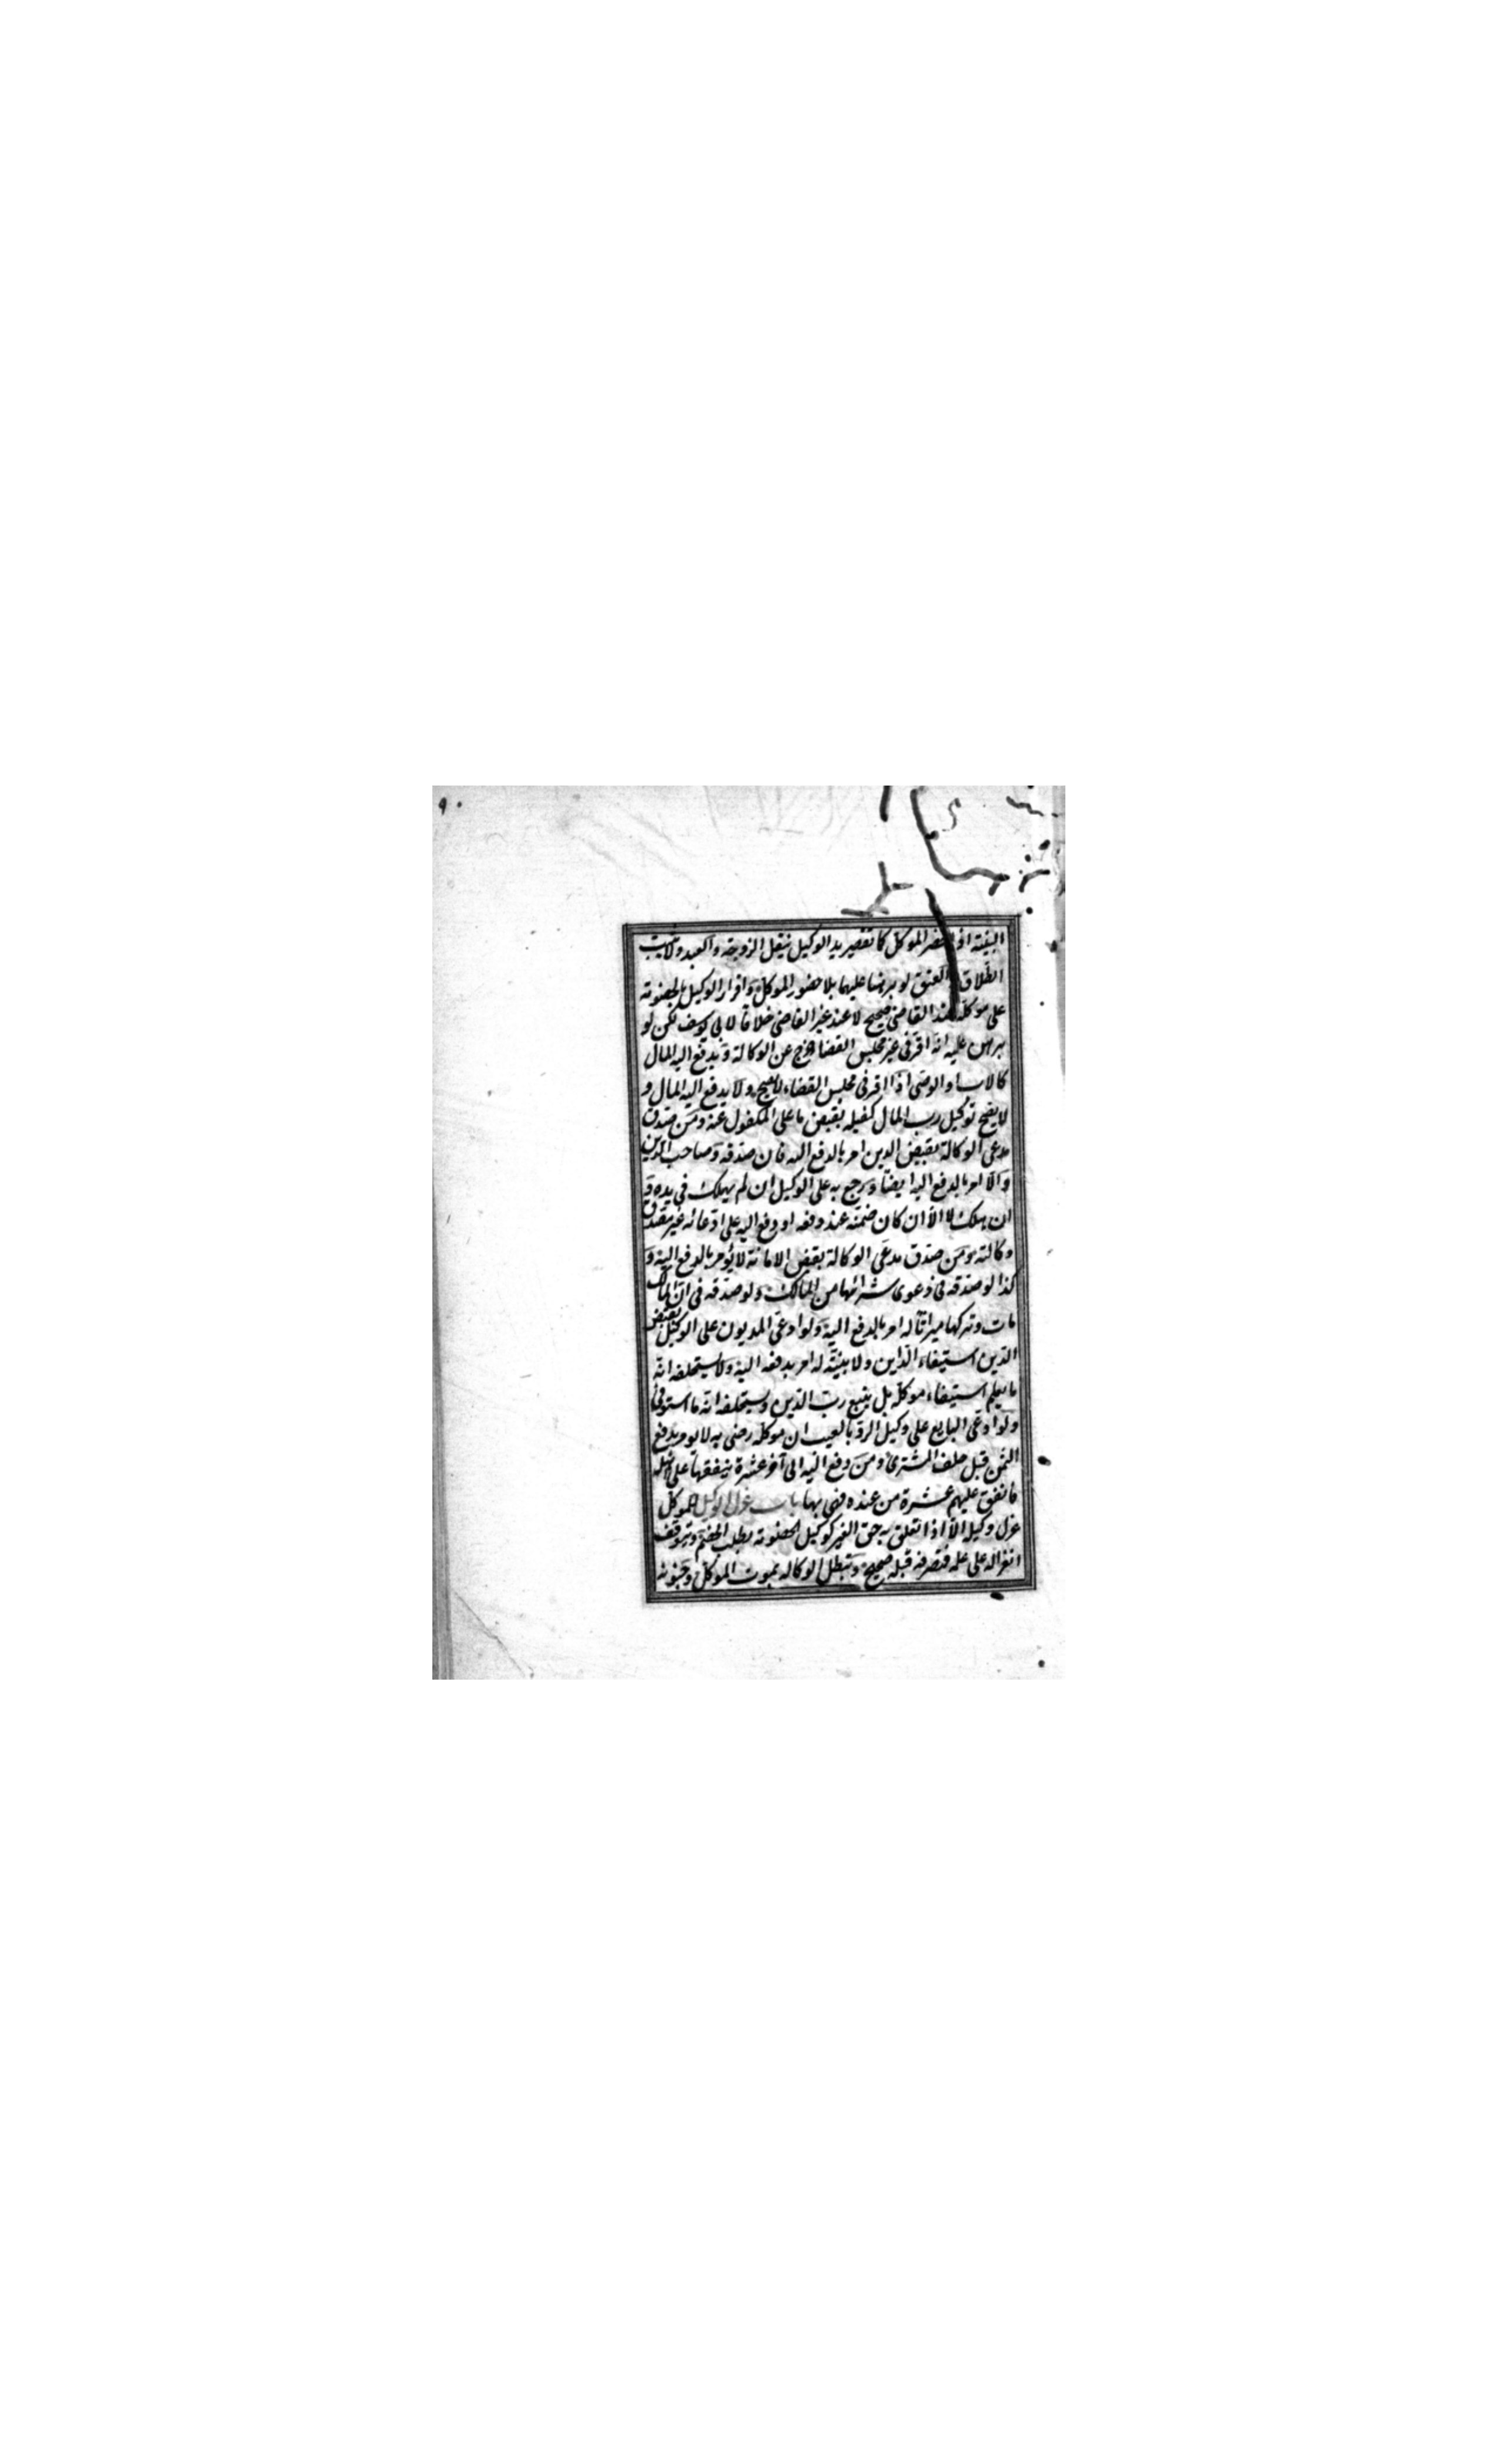 ٩٠
البينة اذا حضر الموكل كما تقصر يد الوكيل بنقل الزوجة والعبد ولا يثبت
الطلاق والعتق لو برهنا عليهما بلا حضور الموكل واقرار الوكيل بالخصومة
على موكله عند القاضي صحيح لا عند غير القاضي خلافا لابي يوسف لكن لو
برهن عليه انه اقر في غير مجلس القضا خرج عن الوكالة ولا يدفع اليه المال
كالاب او الوصي اذا اقر في مجلس القضاء لا يصح ولا يدفع اليه المال و
لا يصح توكيل رب المال كفيله بقبض ما على المكفول عنه ومن صدق
مدعي الوكالة بقبض الدين امر بالدفع اليه فان صدقه صاحب الدين
والا امر بالدفع اليه ايضا ويرجع به على الوكيل ان لم يهلك في يده و
ان هلك لا الا ان كان ضمنه عند دفعه او دفع اليه على ادعائه غير مصدق
وكالته ومن صدق مدعي الوكالة بقبض الامانة لا يؤمر بالدفع اليه و
كذا لو صدقه في دعوى شرائها من المالك ولو صدقه في ان المالك
مات وتركها ميراثا له امر بالدفع اليه ولو ادعى المديون على الوكيل بقبض
الدين استيفاء الداين ولا بينة له امر بدفعه اليه ولا يستحلفه انه
ما يعلم استيفاء موكله بل يتبع رب الدين ويستحلفه انه ما استوفى
ولو ادعى البايع على وكيل الرد بالعيب ان موكله رضي به لا يومر بدفع
الثمن قبل حلف المشتري ومن دفع اليه الى آخر عشرة ينفقها على اهله
فانفق عليهم عشرة من عنده فهي بها باب عزل الوكيل للموكل
عزل وكيله الا اذا تعلق به حق الغير كوكيل الخصومة بطلب الخصم ويتوقف
انعزاله على علمه فتصرفه قبله صحيح وتبطل الوكالة بموت الموكل وجنونه